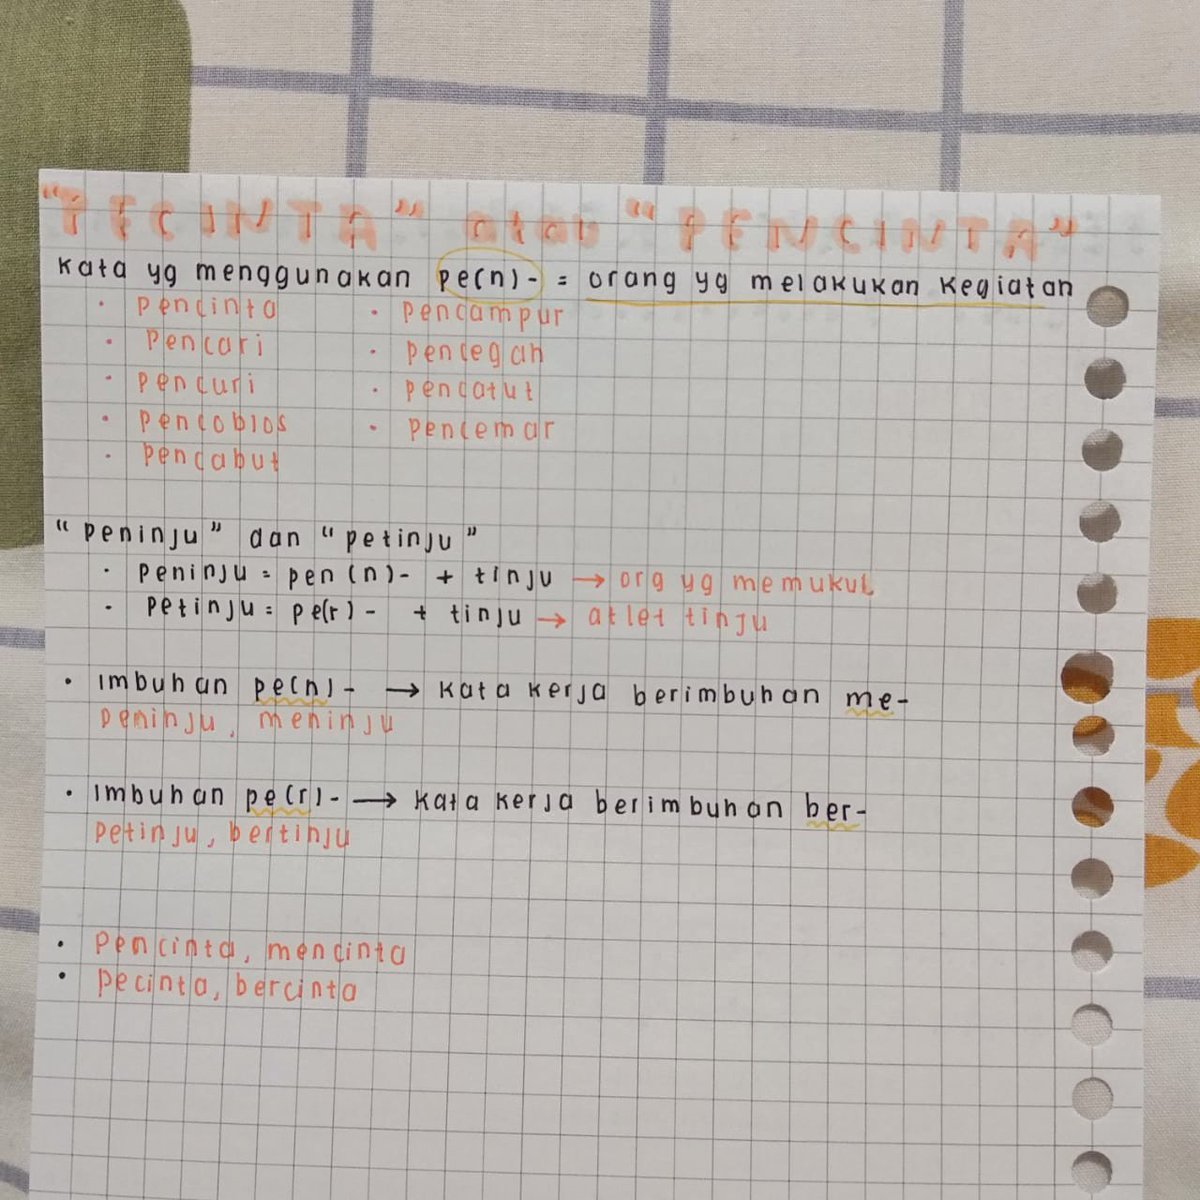 "PECINTA" atau "PENCINTA"
Kata yg menggunakan pe(n)- = orang yg melakukan kegiatan
• pencinta • pencampur
• pencari • pencegah
• pencuri • pencatut
• pencoblos • pencemar
• pencabut
"peninju" dan "petinju"
• peninju = pen(n)- + tinju → org yg memukul
• petinju = pe(r)- + tinju → atlet tinju
• Imbuhan pe(n)- → kata kerja berimbuhan me-
peninju, meninju
• Imbuhan pe(r)- → kata kerja berimbuhan ber-
petinju, bertinju
• pencinta, mencinta
• pecinta, bercinta